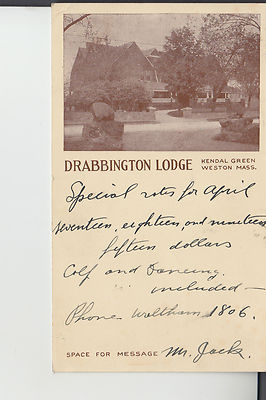 DRABBINGTON LODGE KENDAL GREEN
WESTON MASS.
Special rates for April
seventeen, eighteen, and nineteen
fifteen dollars
Golf and Dancing
included –
Phone Waltham 1806.
SPACE FOR MESSAGE Mr. Jack.